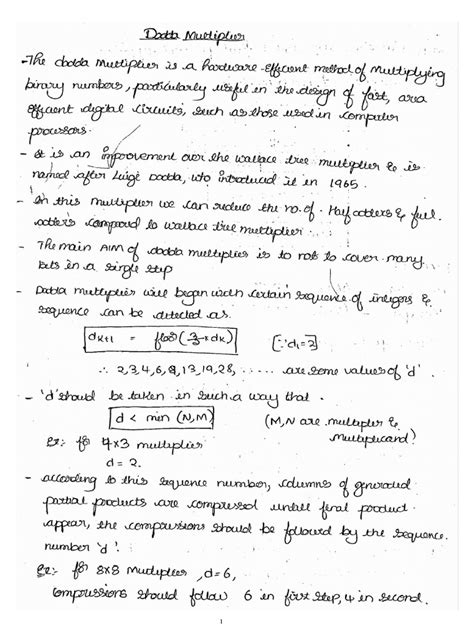 Dadda Multiplier
- The dadda Multiplier is a hardware-efficient method of Multiplying
binary numbers, particularly useful in the design of fast, area
efficient digital circuits, such as those used in computer
processors.
- It is an improvement over the wallace tree multiplier & is
named after Luigi Dadda, who introduced it in 1965.
- In this multiplier we can reduce the no. of. Half adders & full
adders compared to wallace tree multiplier.
- The main AIM of dadda multiplier is to not to cover many
bits in a single step
- Dadda multiplier will began with certain sequence of integers &
sequence can be detected as.
dk+1 = floor(3/2 * dk) [∵ d1=2]
∴ 2,3,4,6,9,13,19,28, ..... are some values of 'd'
- 'd' should be taken in such a way that.
d < min (N,M) (M,N are multiplier &
multiplicand)
Ex:- for 4x3 multiplier
d = 2.
- according to this sequence number, columns of generated
partial products are compressed untill final product
appear, the compressions should be followed by the sequence.
number 'd'.
Ex:- for 8x8 Multiplier, d=6,
compressions should follow 6 in first step, 4 in second.
1